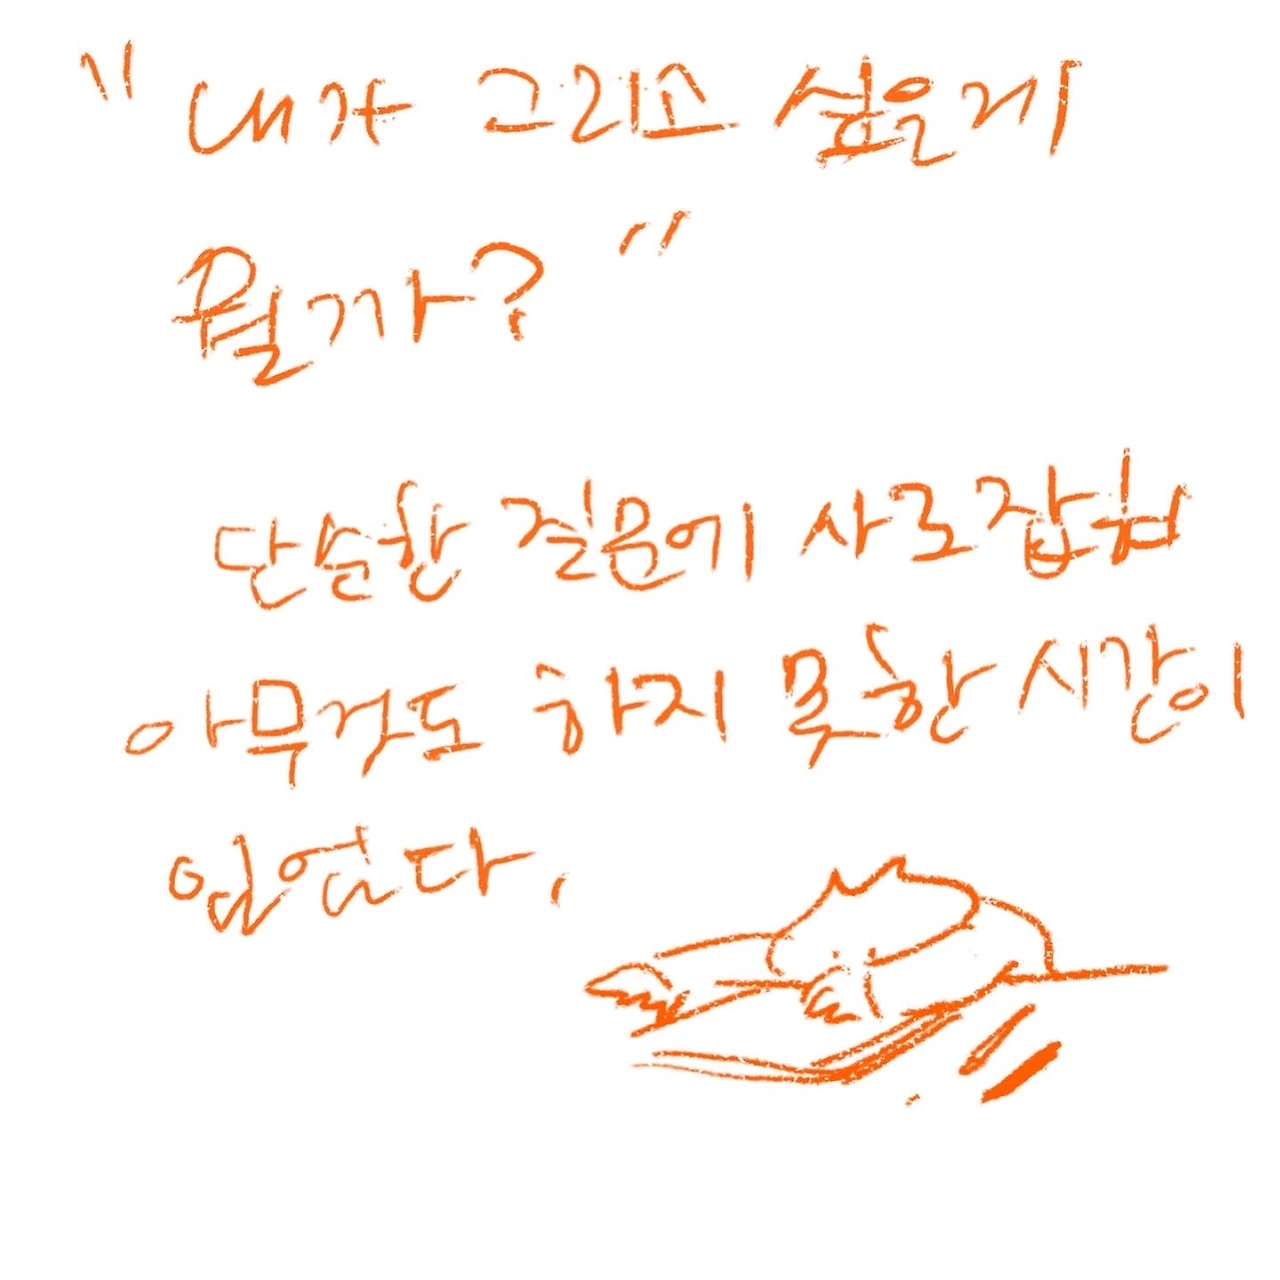 "내가 그리고 싶은게
뭘까?"
단순한 질문에 사로잡혀
아무것도 하지 못한 시간이
있었다.